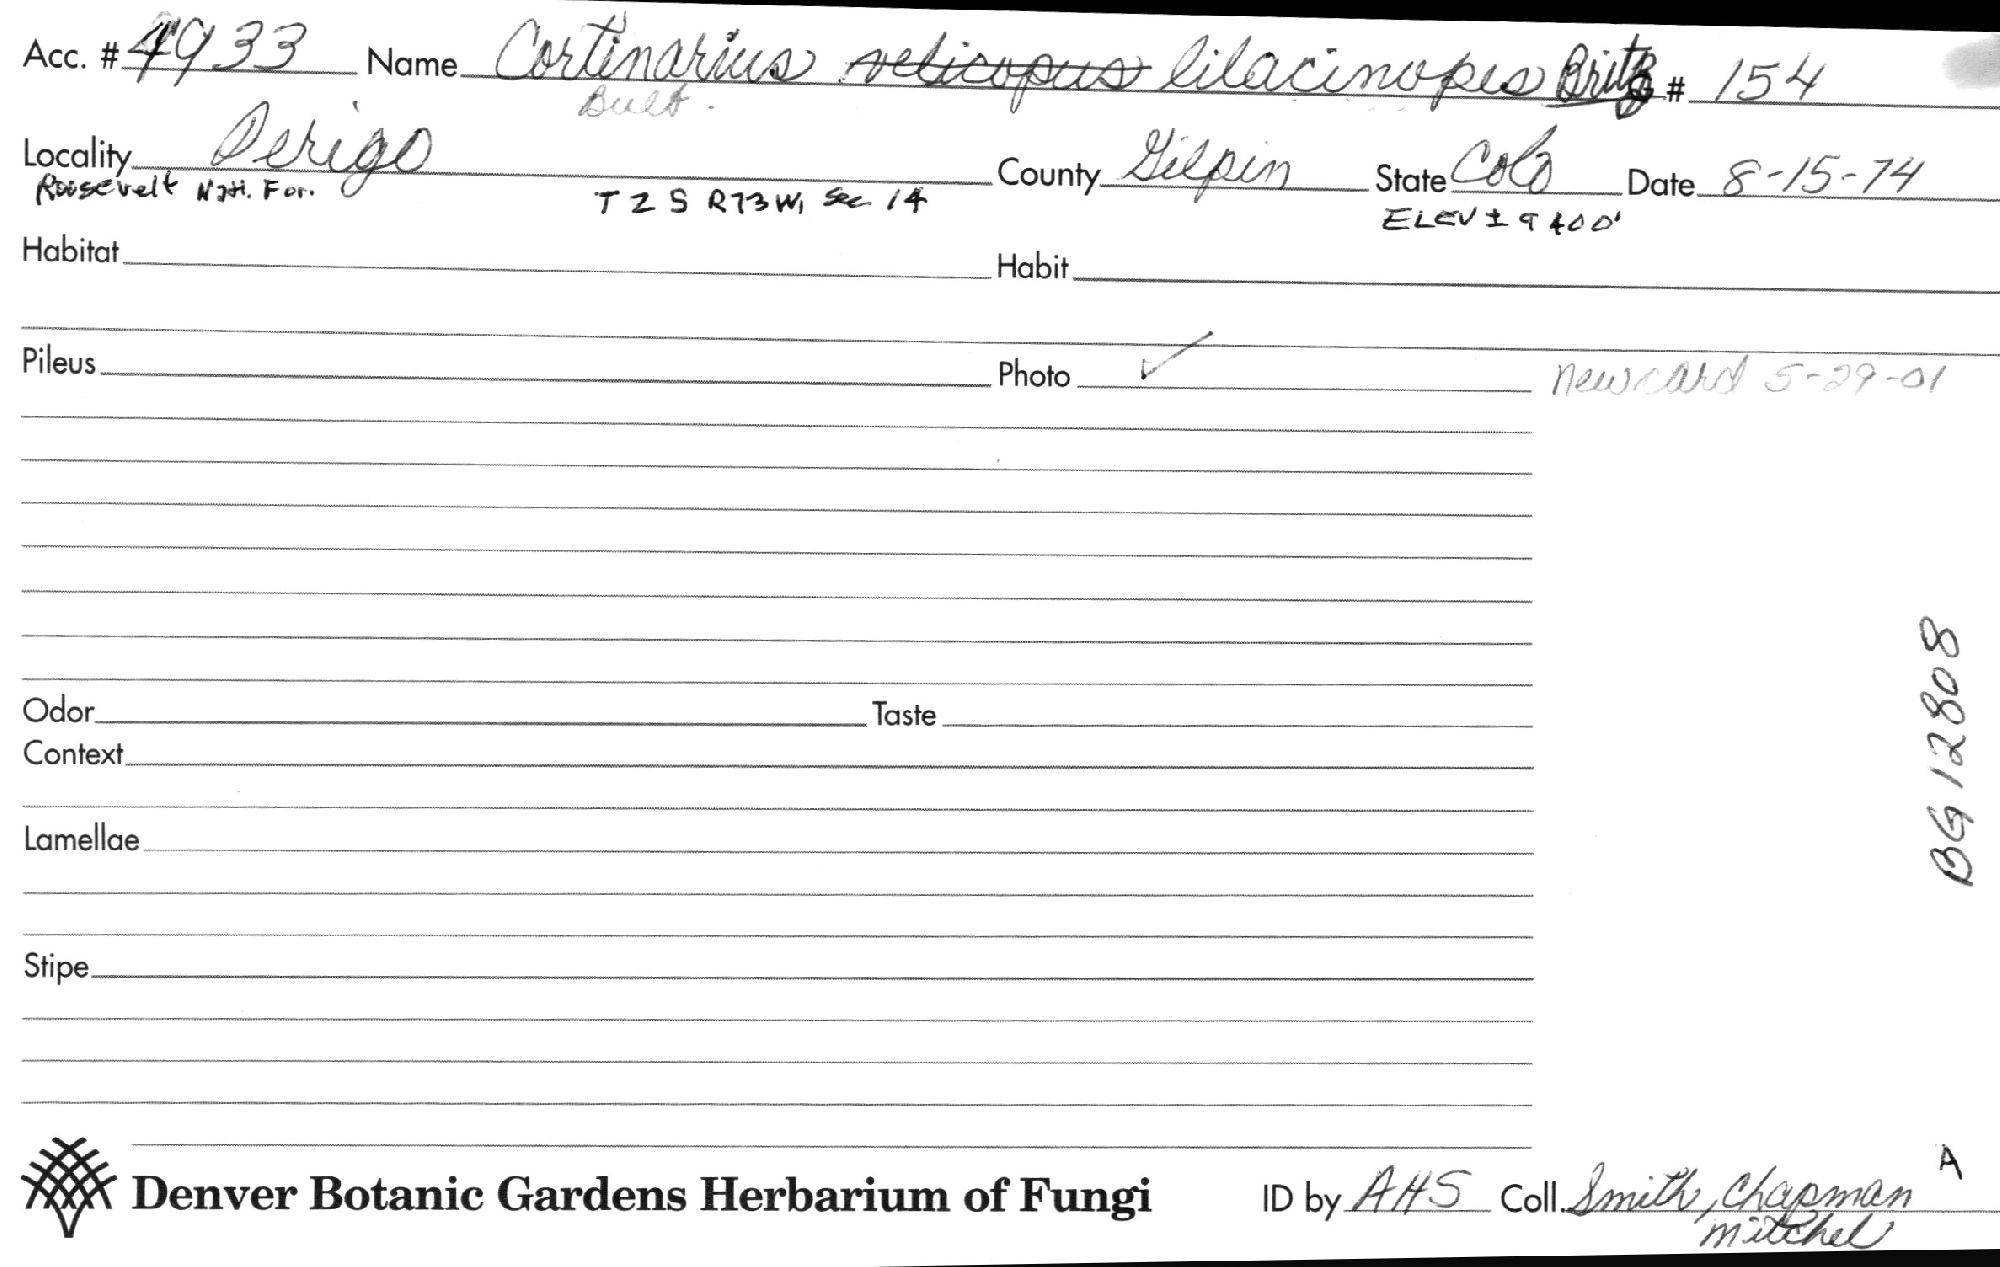 Acc. # 4933 Name Cortinarius velicopus lilacinopes Britz # 154
Bult.
Locality Perigo County Gilpin State Colo Date 8-15-74
Roosevelt Natl. For. T 2 S R73W, Sec 14 ELEV ± 9400'
Habitat Habit
Pileus Photo ✓ new card 5-29-01
Odor Taste
Context
Lamellae
Stipe
BG 12808
Denver Botanic Gardens Herbarium of Fungi ID by AHS Coll. Smith, Chapman A
Mitchel